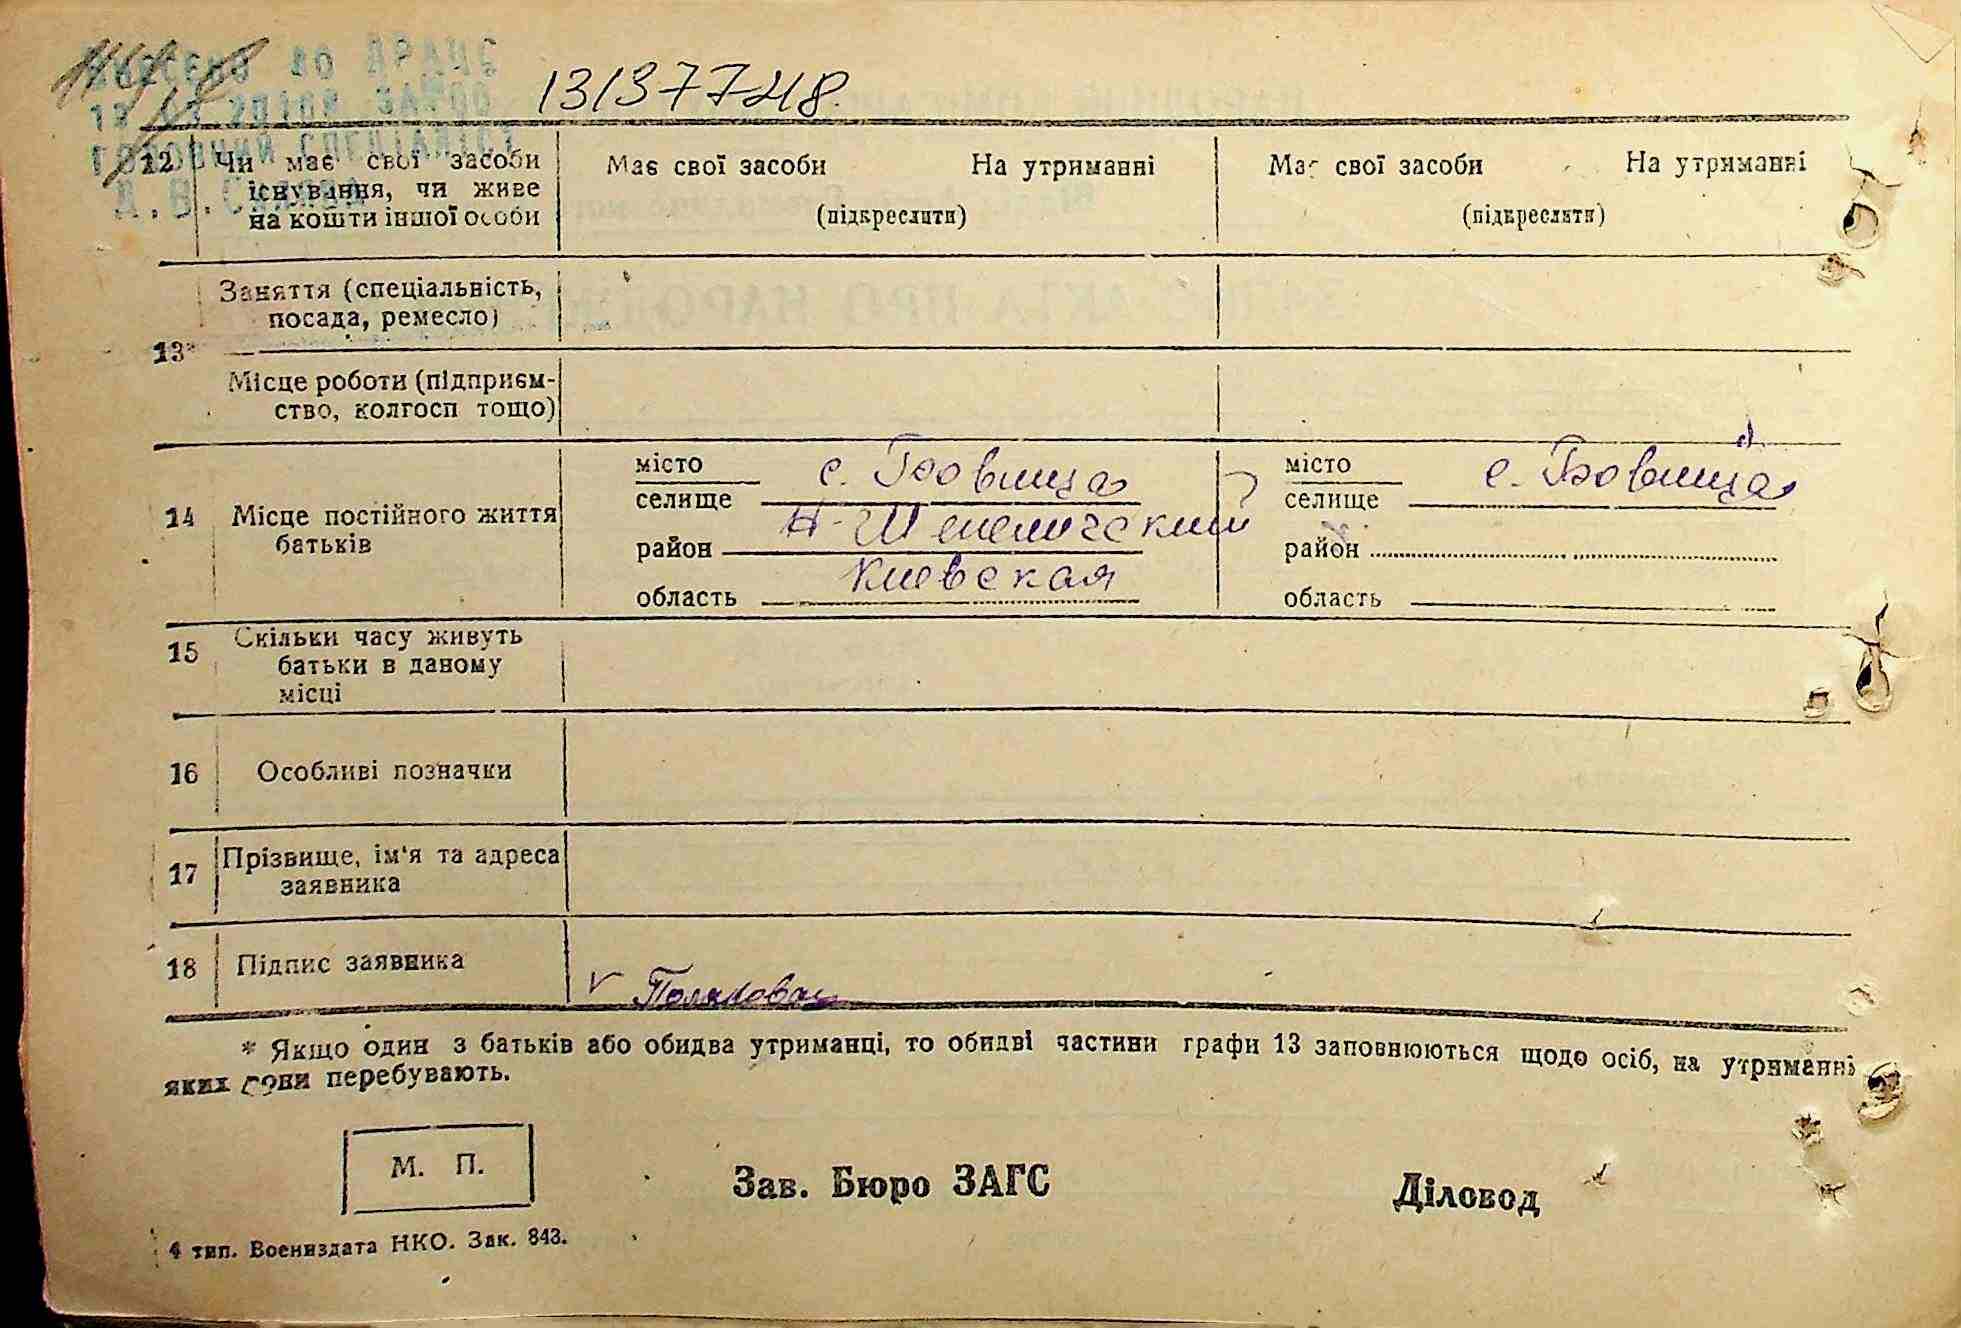 131377748.
12 Чи має свої засоби Має свої засоби На утриманні Має свої засоби На утриманні
існування, чи живе
на кошти іншої особи (підкреслити) (підкреслити)
Заняття (спеціальність,
посада, ремесло)
13*
Місце роботи (підприєм-
ство, колгосп тощо)
місто с. Товшица місто с. Товшица
селище селище
14 Місце постійного життя Н-Шепеличский
батьків район район
Киевская
область область
15 Скільки часу живуть
батьки в даному
місці
16 Особливі позначки
17 Прізвище, ім'я та адреса
заявника
18 Підпис заявника V Полякова
* Якщо один з батьків або обидва утриманці, то обидві частини графи 13 заповнюються щодо осіб, на утриманні
яких вони перебувають.
М. П.
Зав. Бюро ЗАГС Діловод
4 тип. Воениздата НКО. Зак. 843.